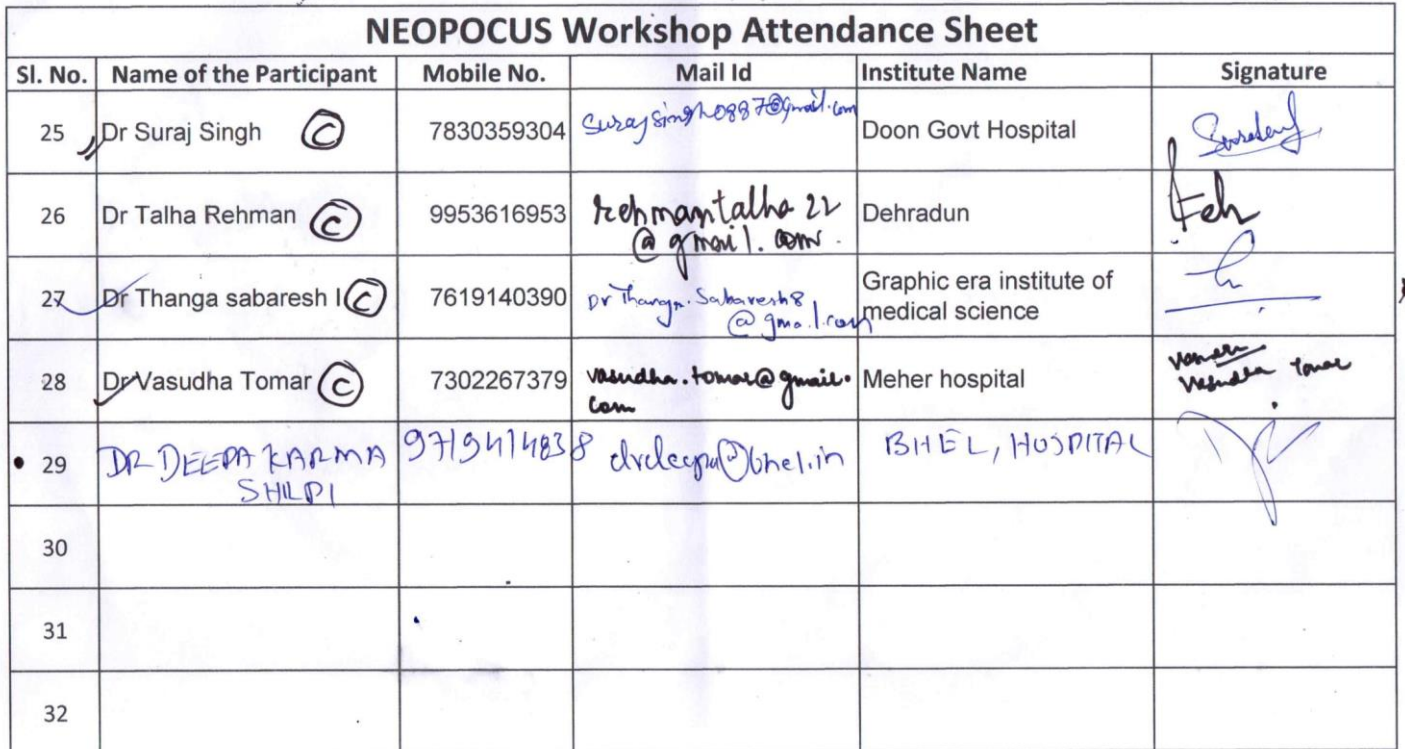 NEOPOCUS Workshop Attendance Sheet
Sl. No. Name of the Participant Mobile No. Mail Id Institute Name Signature
25 Dr Suraj Singh C 7830359304 surajsingh0887@gmail.com Doon Govt Hospital
26 Dr Talha Rehman C 9953616953 rehmantalha22 Dehradun
@gmail.com.
27 Dr Thanga sabaresh I C 7619140390 DrThanga.Sabaresh8 Graphic era institute of
@gmail.com medical science
28 Dr Vasudha Tomar C 7302267379 vasudha.tomar@gmail. Meher hospital Vasudha Tomar
com
29 DR DEEPA KARMA 9719414838 drdeepa@bhel.in BHEL, HOSPITAL
SHILPI
30
31
32